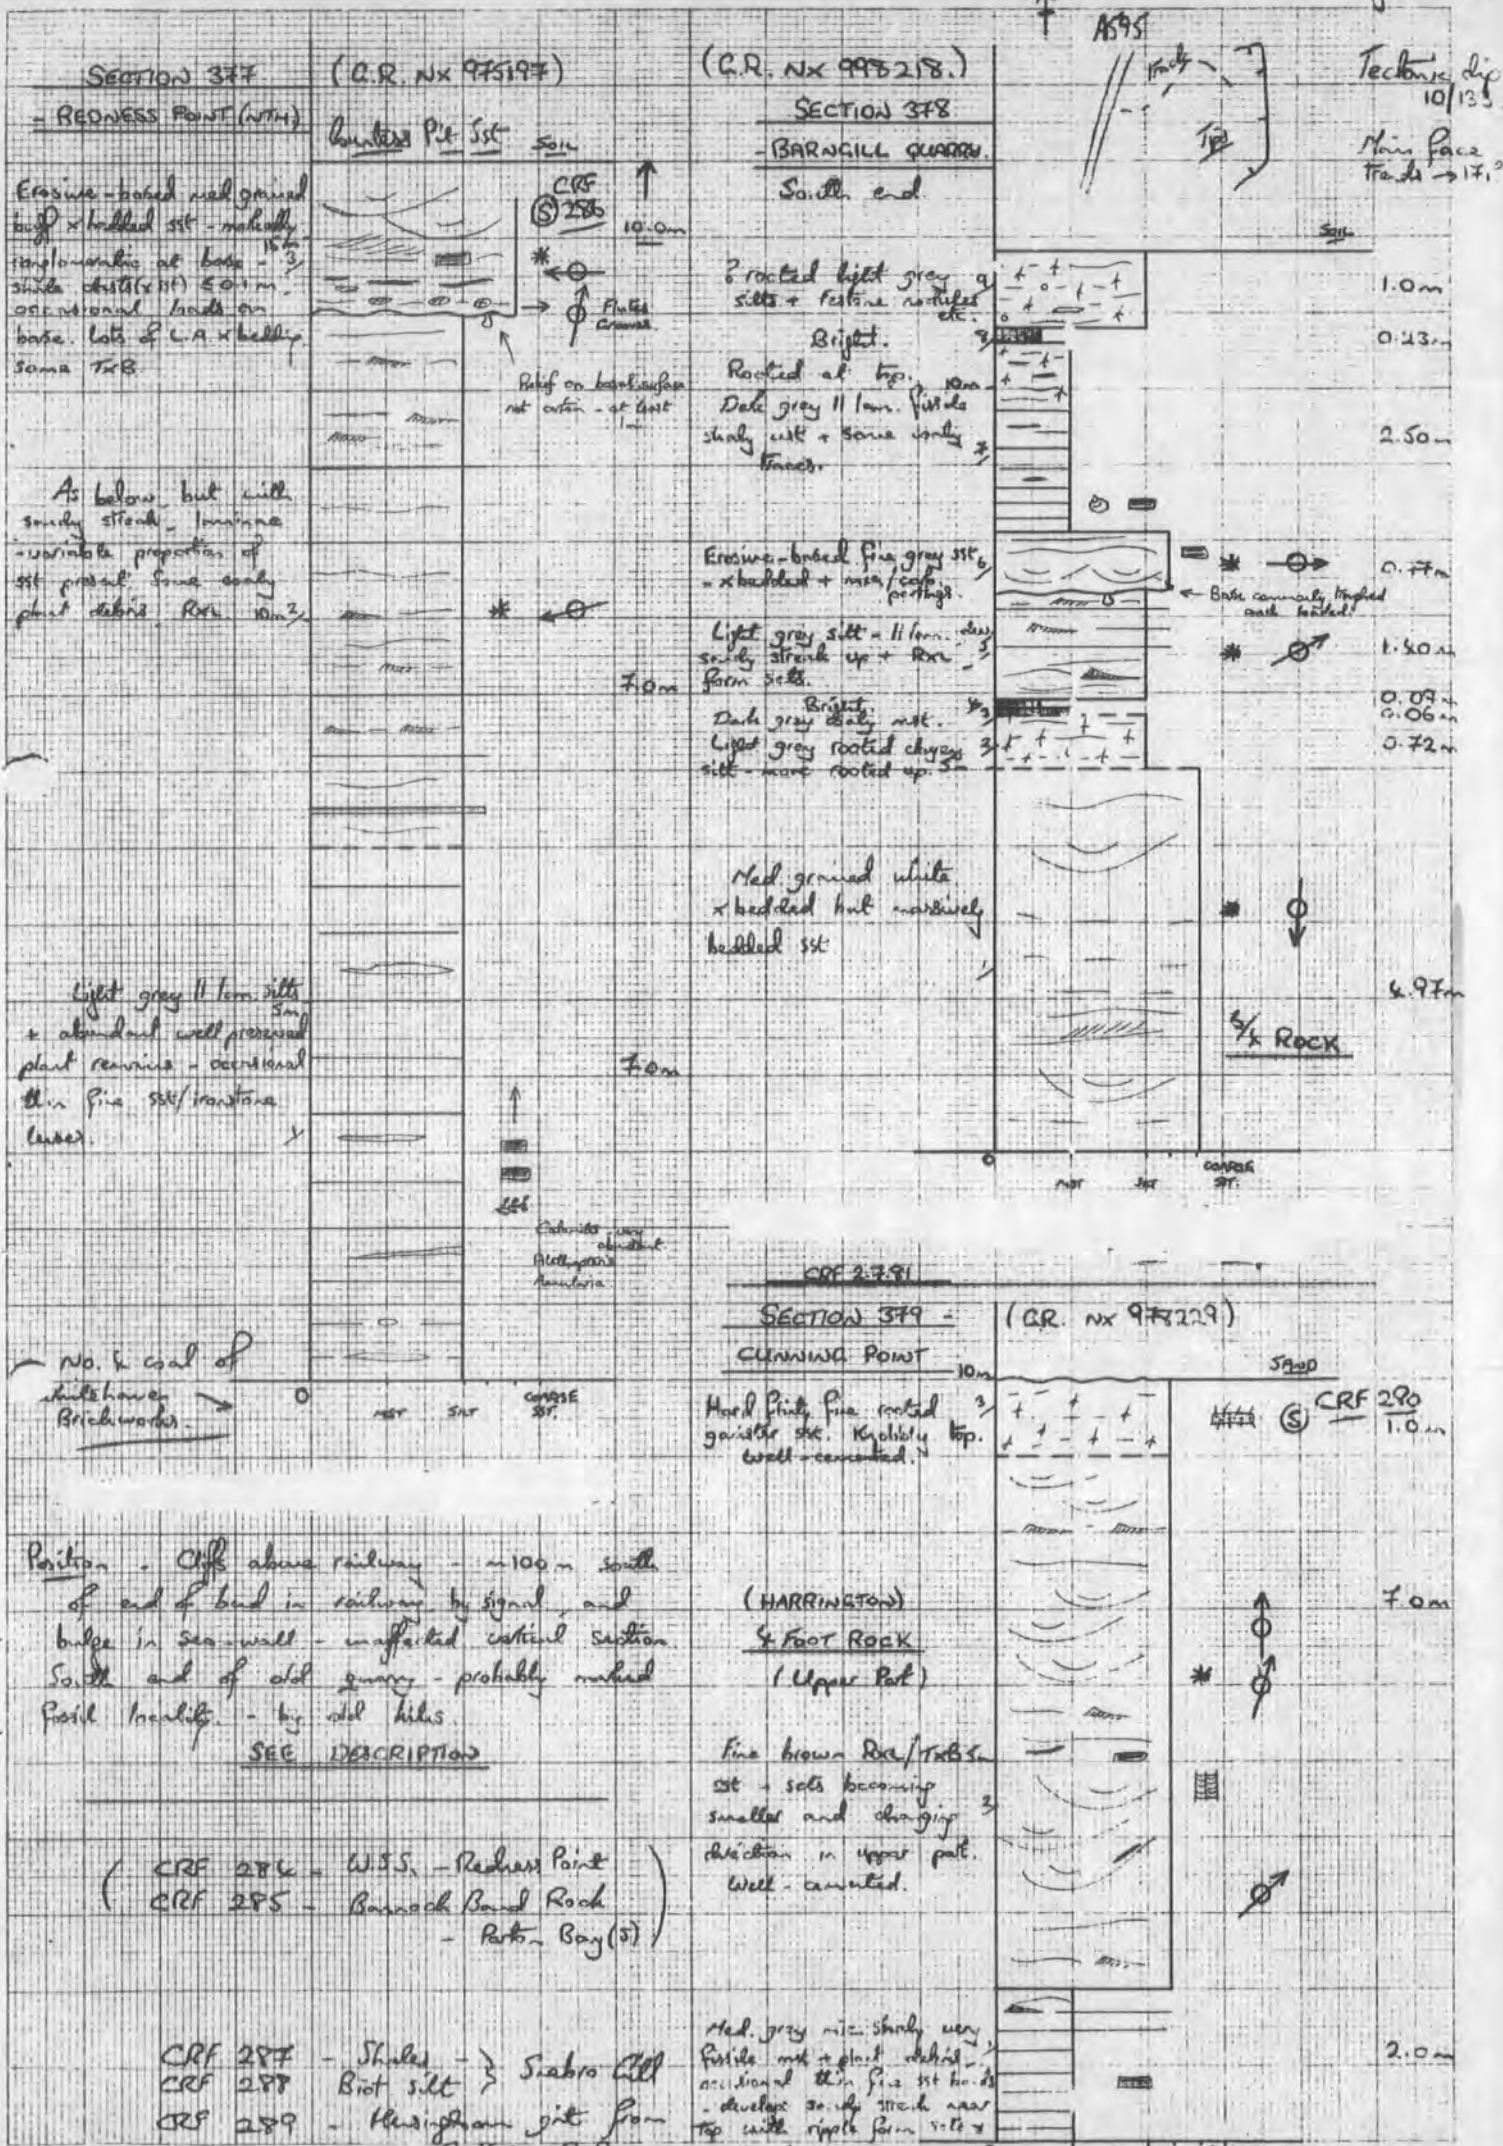 SECTION 377
(G.R. NX 975197)
- REDNESS POINT (NTH)
Countess Pit Sst
SOIL
Erosive-based med grained
buff x bedded sst - markedly
conglomeratic at base -
shale clasts ≤ 0.1 m
occasional loads on
base. Lots of L.A. x bedding
some TxB.
15m
3
CRF
(S) 286
10.0m
Flutes
Grooves.
Relief on basal surface
not certain - at least
1m
As below, but with
sandy streak laminae
- variable proportion of
sst present. Some coaly
plant debris RxL
10m 2
7.0m
Light grey || lam. silts
5m
+ abundant well preserved
plant remains - occasional
thin fine sst/ironstone
lenses.
1
7.0m
Calamites - very
abundant.
Alethopteris
Annularia
No. 4 coal of
Whitehaven
Brickworks.
0
MST SILT COARSE
SST.
Position - Cliffs above railway - ~100m south
of end of bend in railway by signal, and
bulge in sea-wall - unaffected vertical section
South end of old quarry - probably
fossil locality - by old kilns.
SEE DESCRIPTION
( CRF 284 - W.S.S. - Redness Point
CRF 285 - Bannock Band Rock
- Parton Bay (S) )
CRF 287 - Shales
CRF 288 Biot silt } Snebro Gill
CRF 289 - Hensingham grit from
(G.R. NX 998218.)
SECTION 378
- BARNGILL QUARRY.
South end
A595
Track
Tips
Tectonic dip
10/135
Main face
trends → 171°
SOIL
? rooted light grey
silts + Festone nodules
etc.
9
1.0m
Bright.
8
0.23m
Rooted at top.
10m
Dark grey || lam. fissile
shaly mst + some coaly
traces.
7
2.50m
Erosive-based fine grey sst
- x bedded + mica/carb.
partings.
6
0.77m
Base commonly troughed
and loaded.
Light grey silt - || lam.
sandy streak up + RxL
form sets.
5
1.40m
Bright.
0.07m
Dark grey coaly mst.
0.06m
Light grey rooted clayey
silt - more rooted up.
3
5m
0.72m
Med. grained white
x bedded but massively
bedded sst
1
4.97m
5/4 ROCK
0
MST SILT COARSE
SST.
CRF 2.7.81
SECTION 379 -
(G.R. NX 978229)
CUNNING POINT
10m
SAND
Hard flinty fine rooted
ganister sst. Knobbly top.
Well-cemented.
3
(S) CRF 290
1.0m
(HARRINGTON)
4 FOOT ROCK
(Upper Part)
7.0m
Fine brown RxL/TxB
5m
sst - sets becoming
smaller and changing
direction in upper part.
Well-cemented.
2
Med. grey mic. shaly very
fissile mst + plant debris -
occasional thin fine sst bands
- develops sandy streak near
top with ripple form sets
2.0m